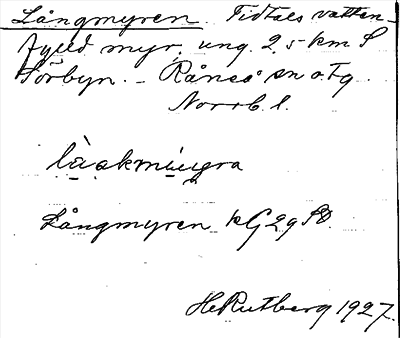 Långmyren. Tidtals vatten-
fylld myr, ung. 2,5 km S
Sörbyn. - Råneå sn o. Tg.
Norrb. l.
Långmyren kG 29 SO.
H. Rutberg 1927.